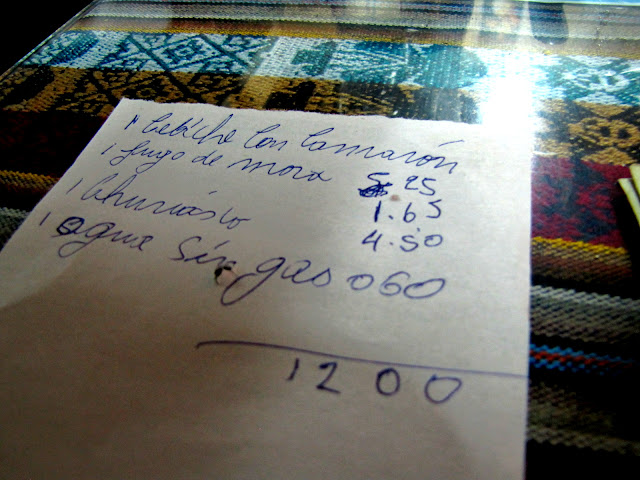 1 Cebiche Con Camarón
5 25
1 Jugo de mora
1.65
1 Churrásco
4.50
1 agua sin gas 060
1200